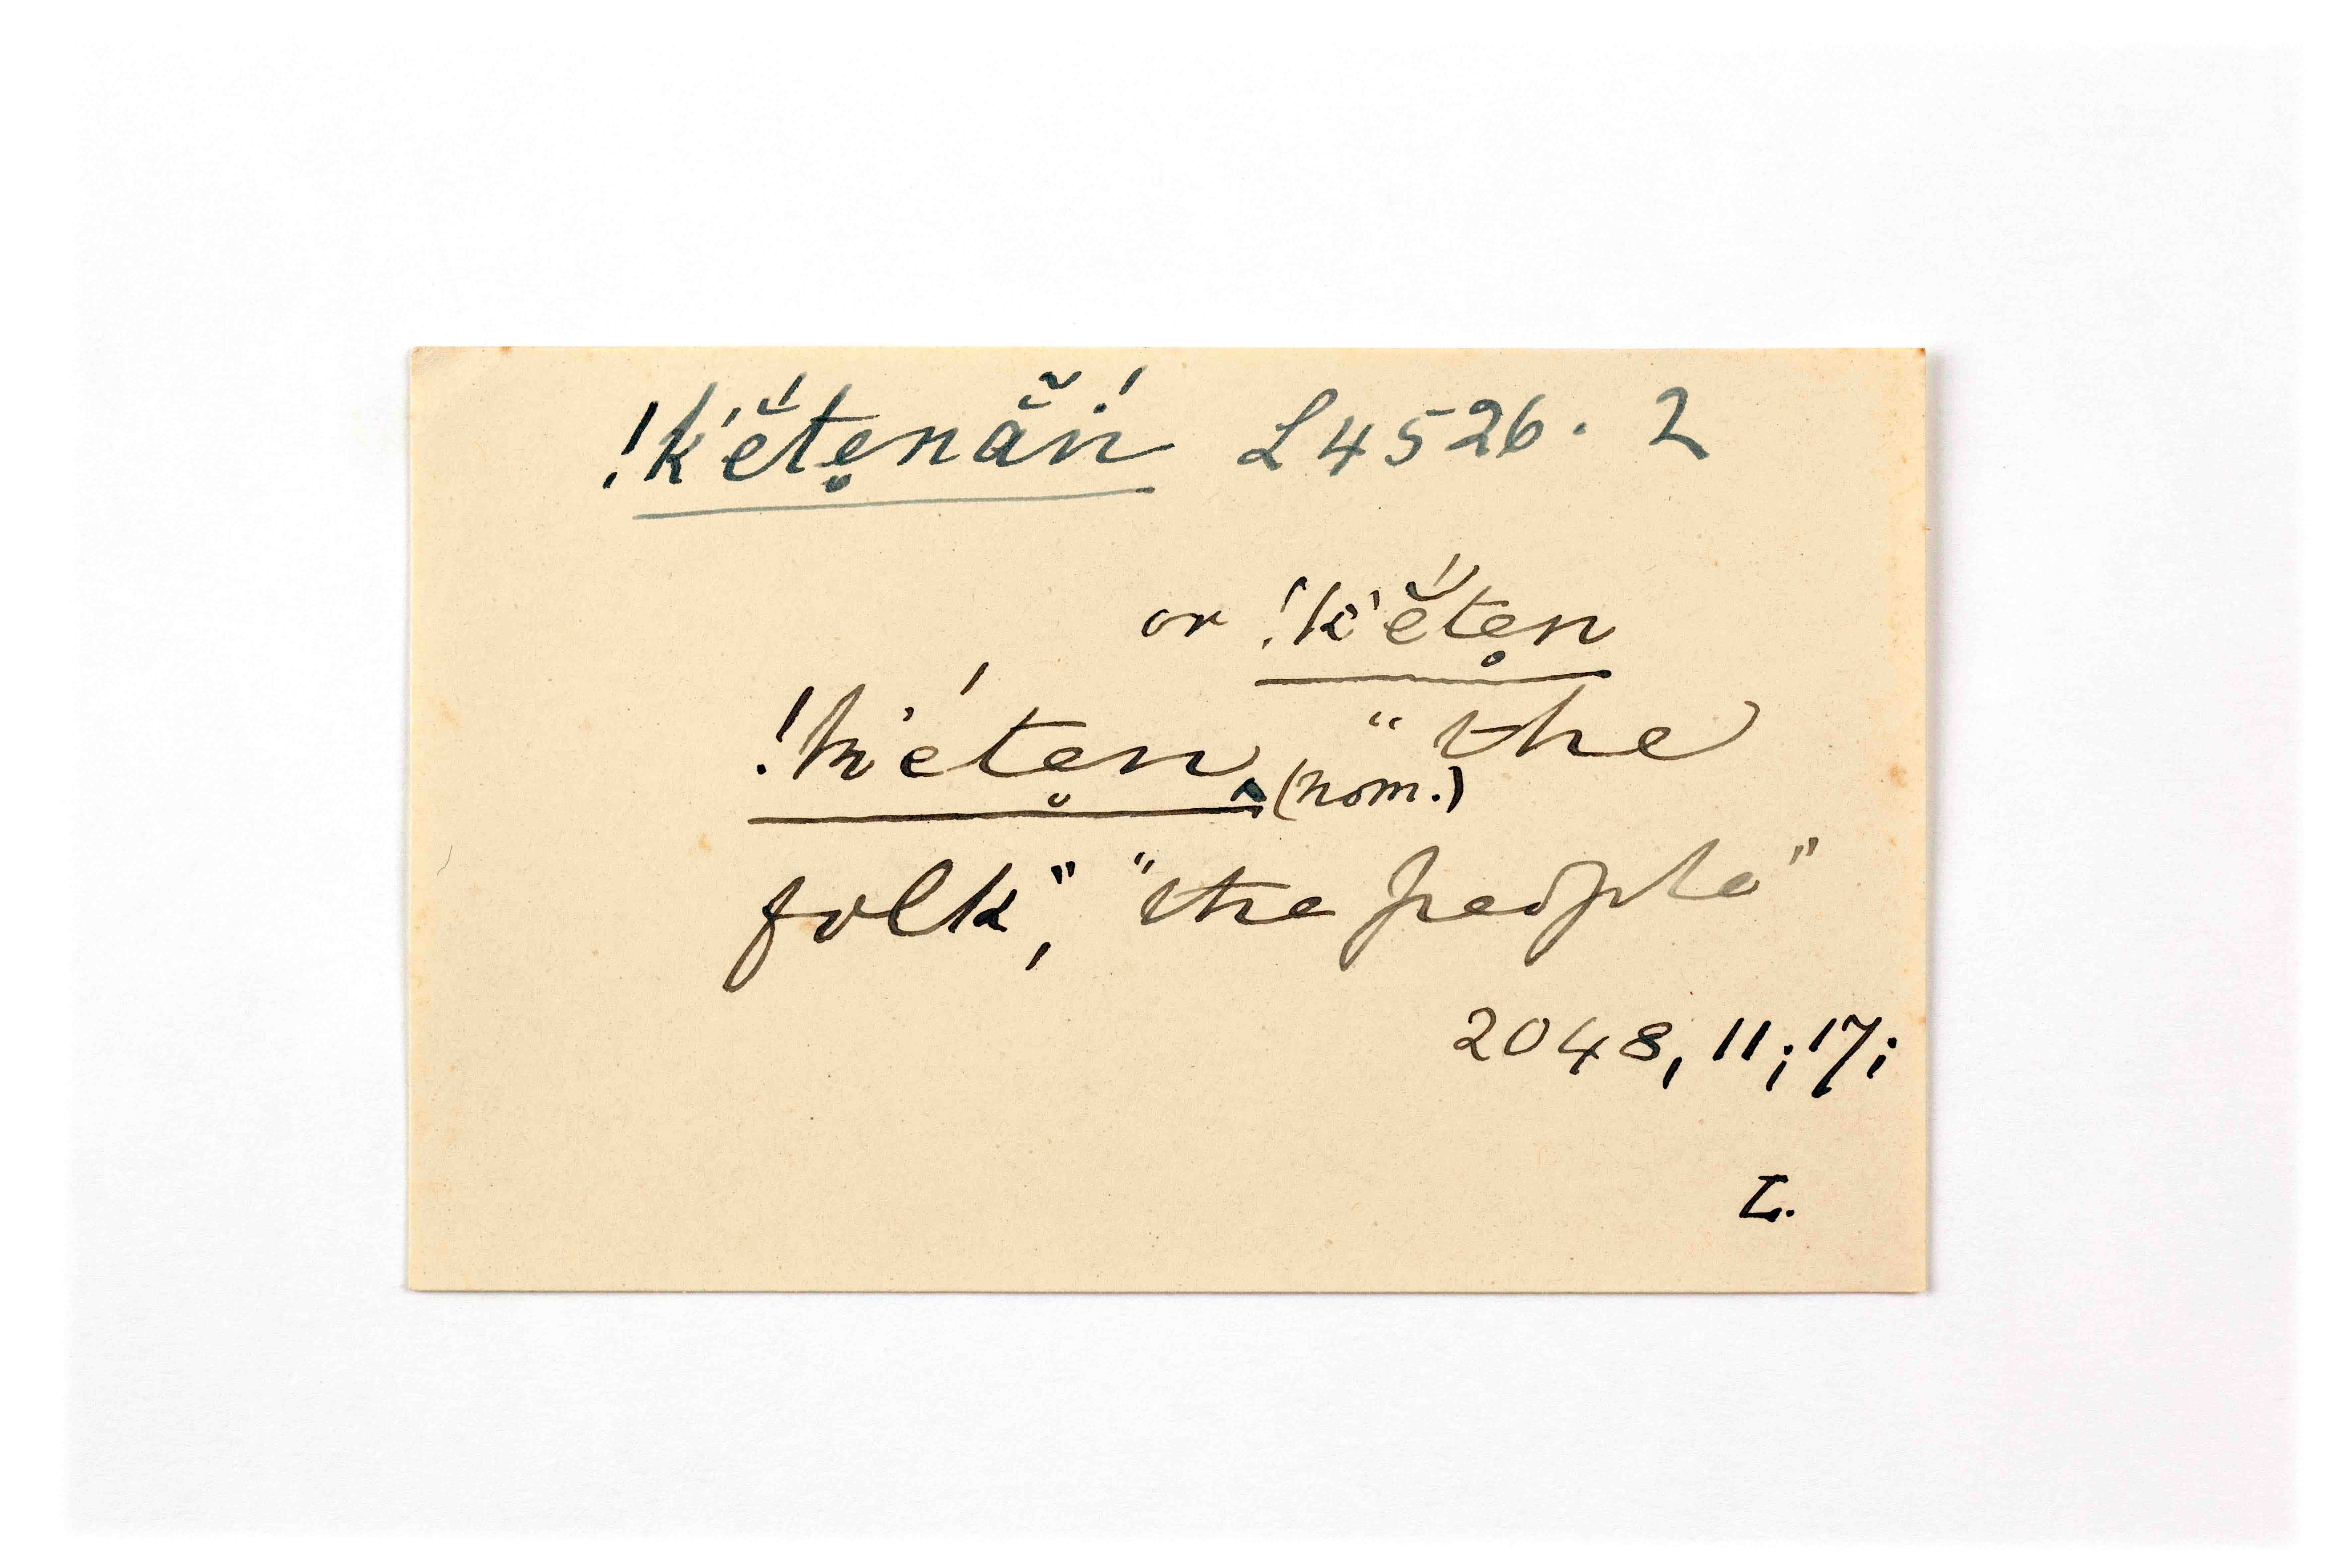 !k'ĕ́tẹnä̆ń L4526. 2
or !k'ĕ́tẹn
!k'étẹn "the
(nom.)
folk", "the people"
2048, 11; 17;
L.